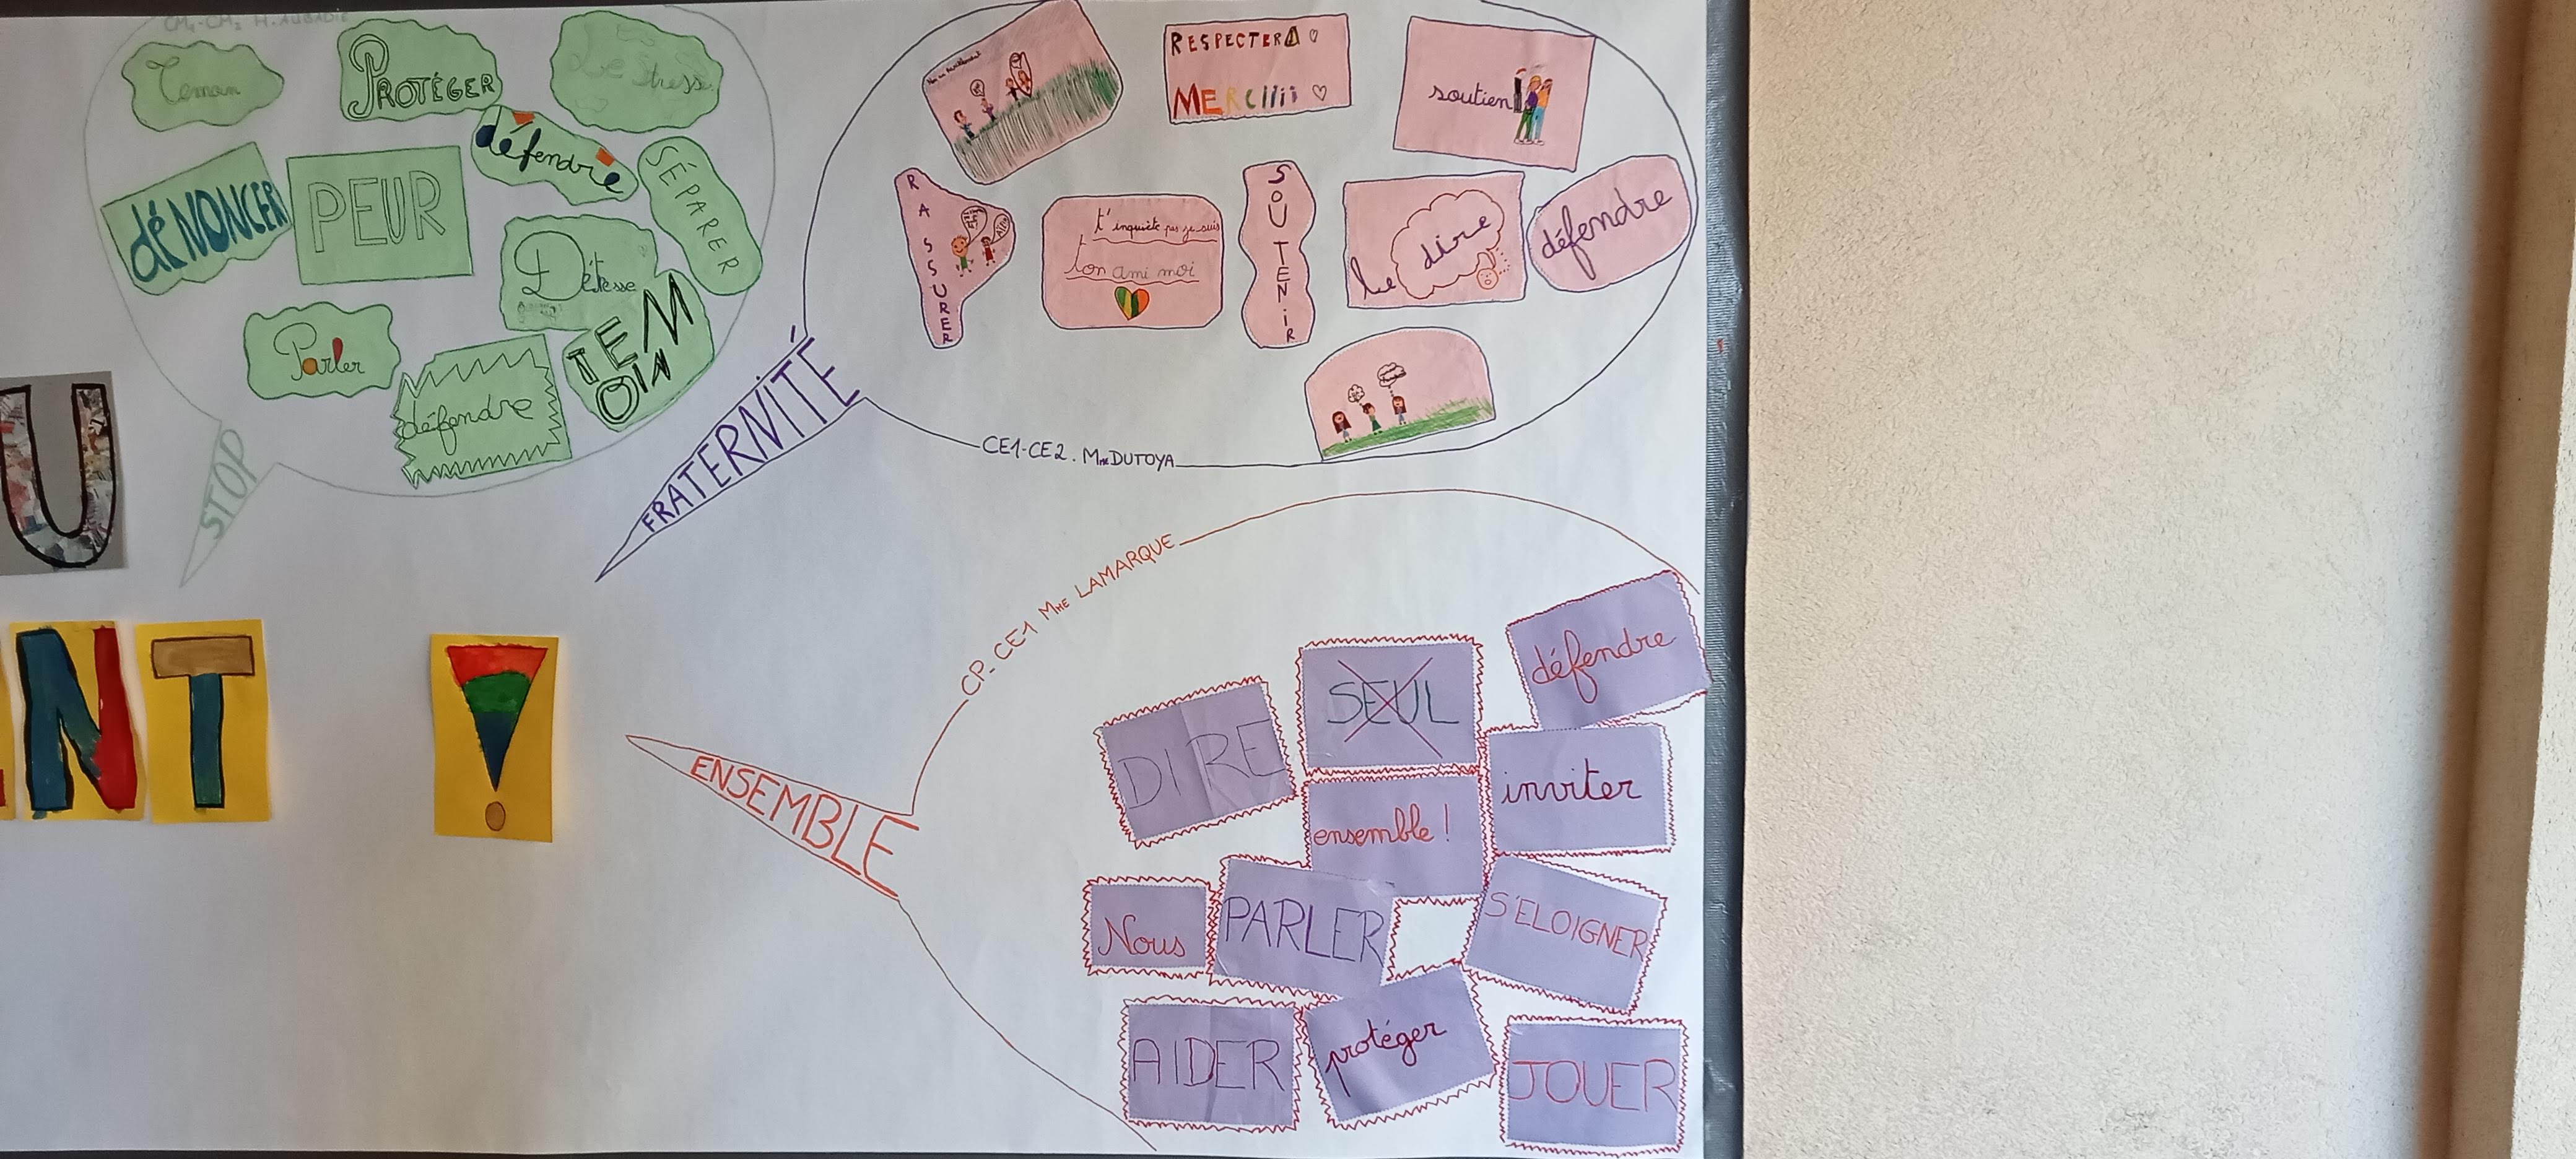 CM1-CM2 M. AUBADIE
PROTÉGER
Le stresse
défendre
SÉPARER
déNONCER
PEUR
Détesse
TEMOIN
Parler
défendre
STOP
RESPECTER
MERCIiii
soutien
RASSURER
t'inquiète pas je suis
ton ami moi
SOUTENiR
le dire
défendre
FRATERNITÉ
CE1-CE2. Mme DUTOYA
U
NT !
CP-CE1 Mme LAMARQUE
ENSEMBLE
DIRE
SEUL
défendre
ensemble !
inviter
Nous
PARLER
S'ELOIGNER
AIDER
protéger
JOUER